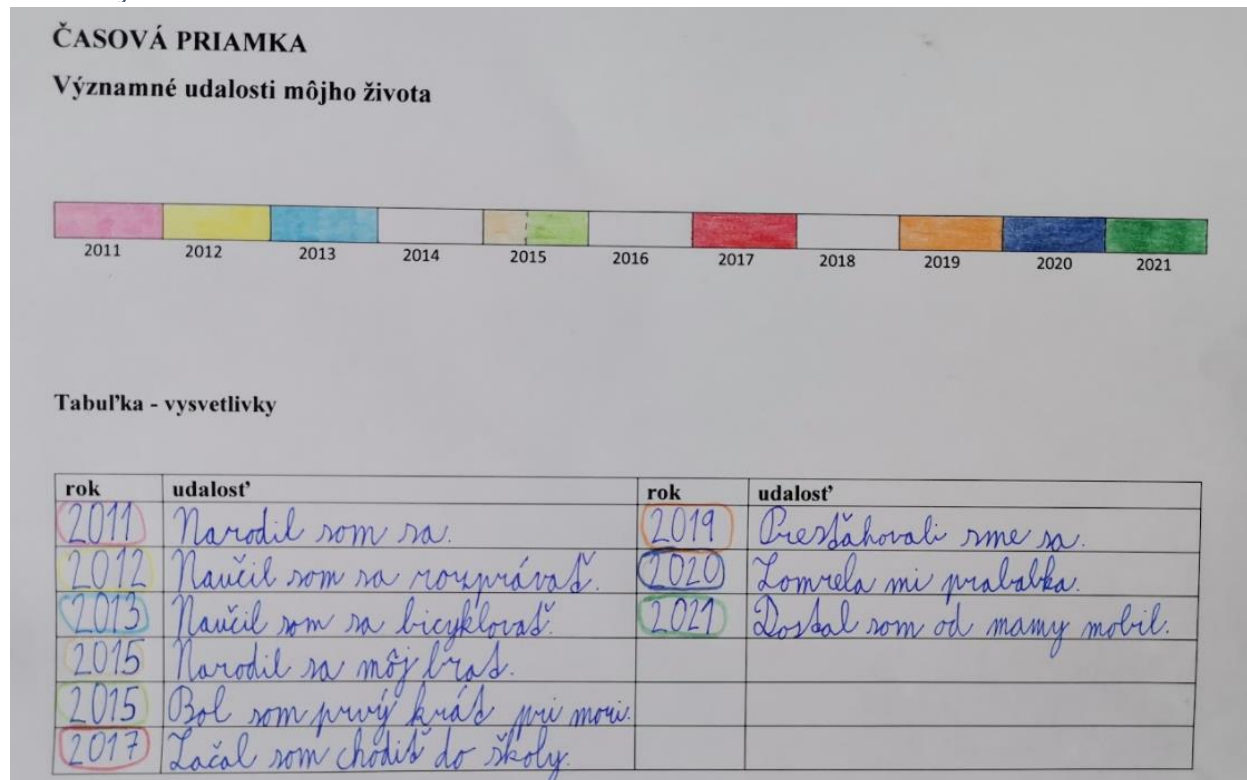 ČASOVÁ PRIAMKA
Významné udalosti môjho života
2011 2012 2013 2014 2015 2016 2017 2018 2019 2020 2021
Tabuľka - vysvetlivky
rok udalosť rok udalosť
2011 Narodil som sa. 2019 Presťahovali sme sa.
2012 Naučil som sa rozprávať. 2020 Zomrela mi prababka.
2013 Naučil som sa bicyklovať. 2021 Dostal som od mamy mobil.
2015 Narodil sa môj brat.
2015 Bol som prvý krát pri mori.
2017 Začal som chodiť do školy.